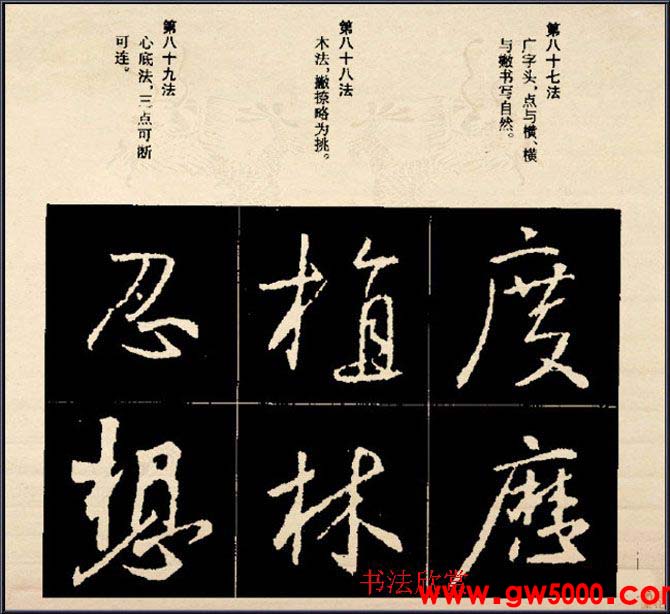 第八十七法
广字头,点与横、横
与撇书写自然。
第八十八法
木法,撇捺略为挑。
第八十九法
心底法,三点可断
可连。
度
植
林
忍
想
书法欣赏
www.gw5000.com